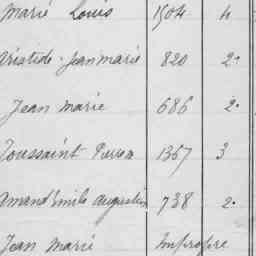 Marie Louis 1504 4
Aristide Jean marie 820 2
Jean Marie 686 2
Toussaint Pierre 1367 3
Amand Emile Augustin 738 2
Jean Marie Impropre